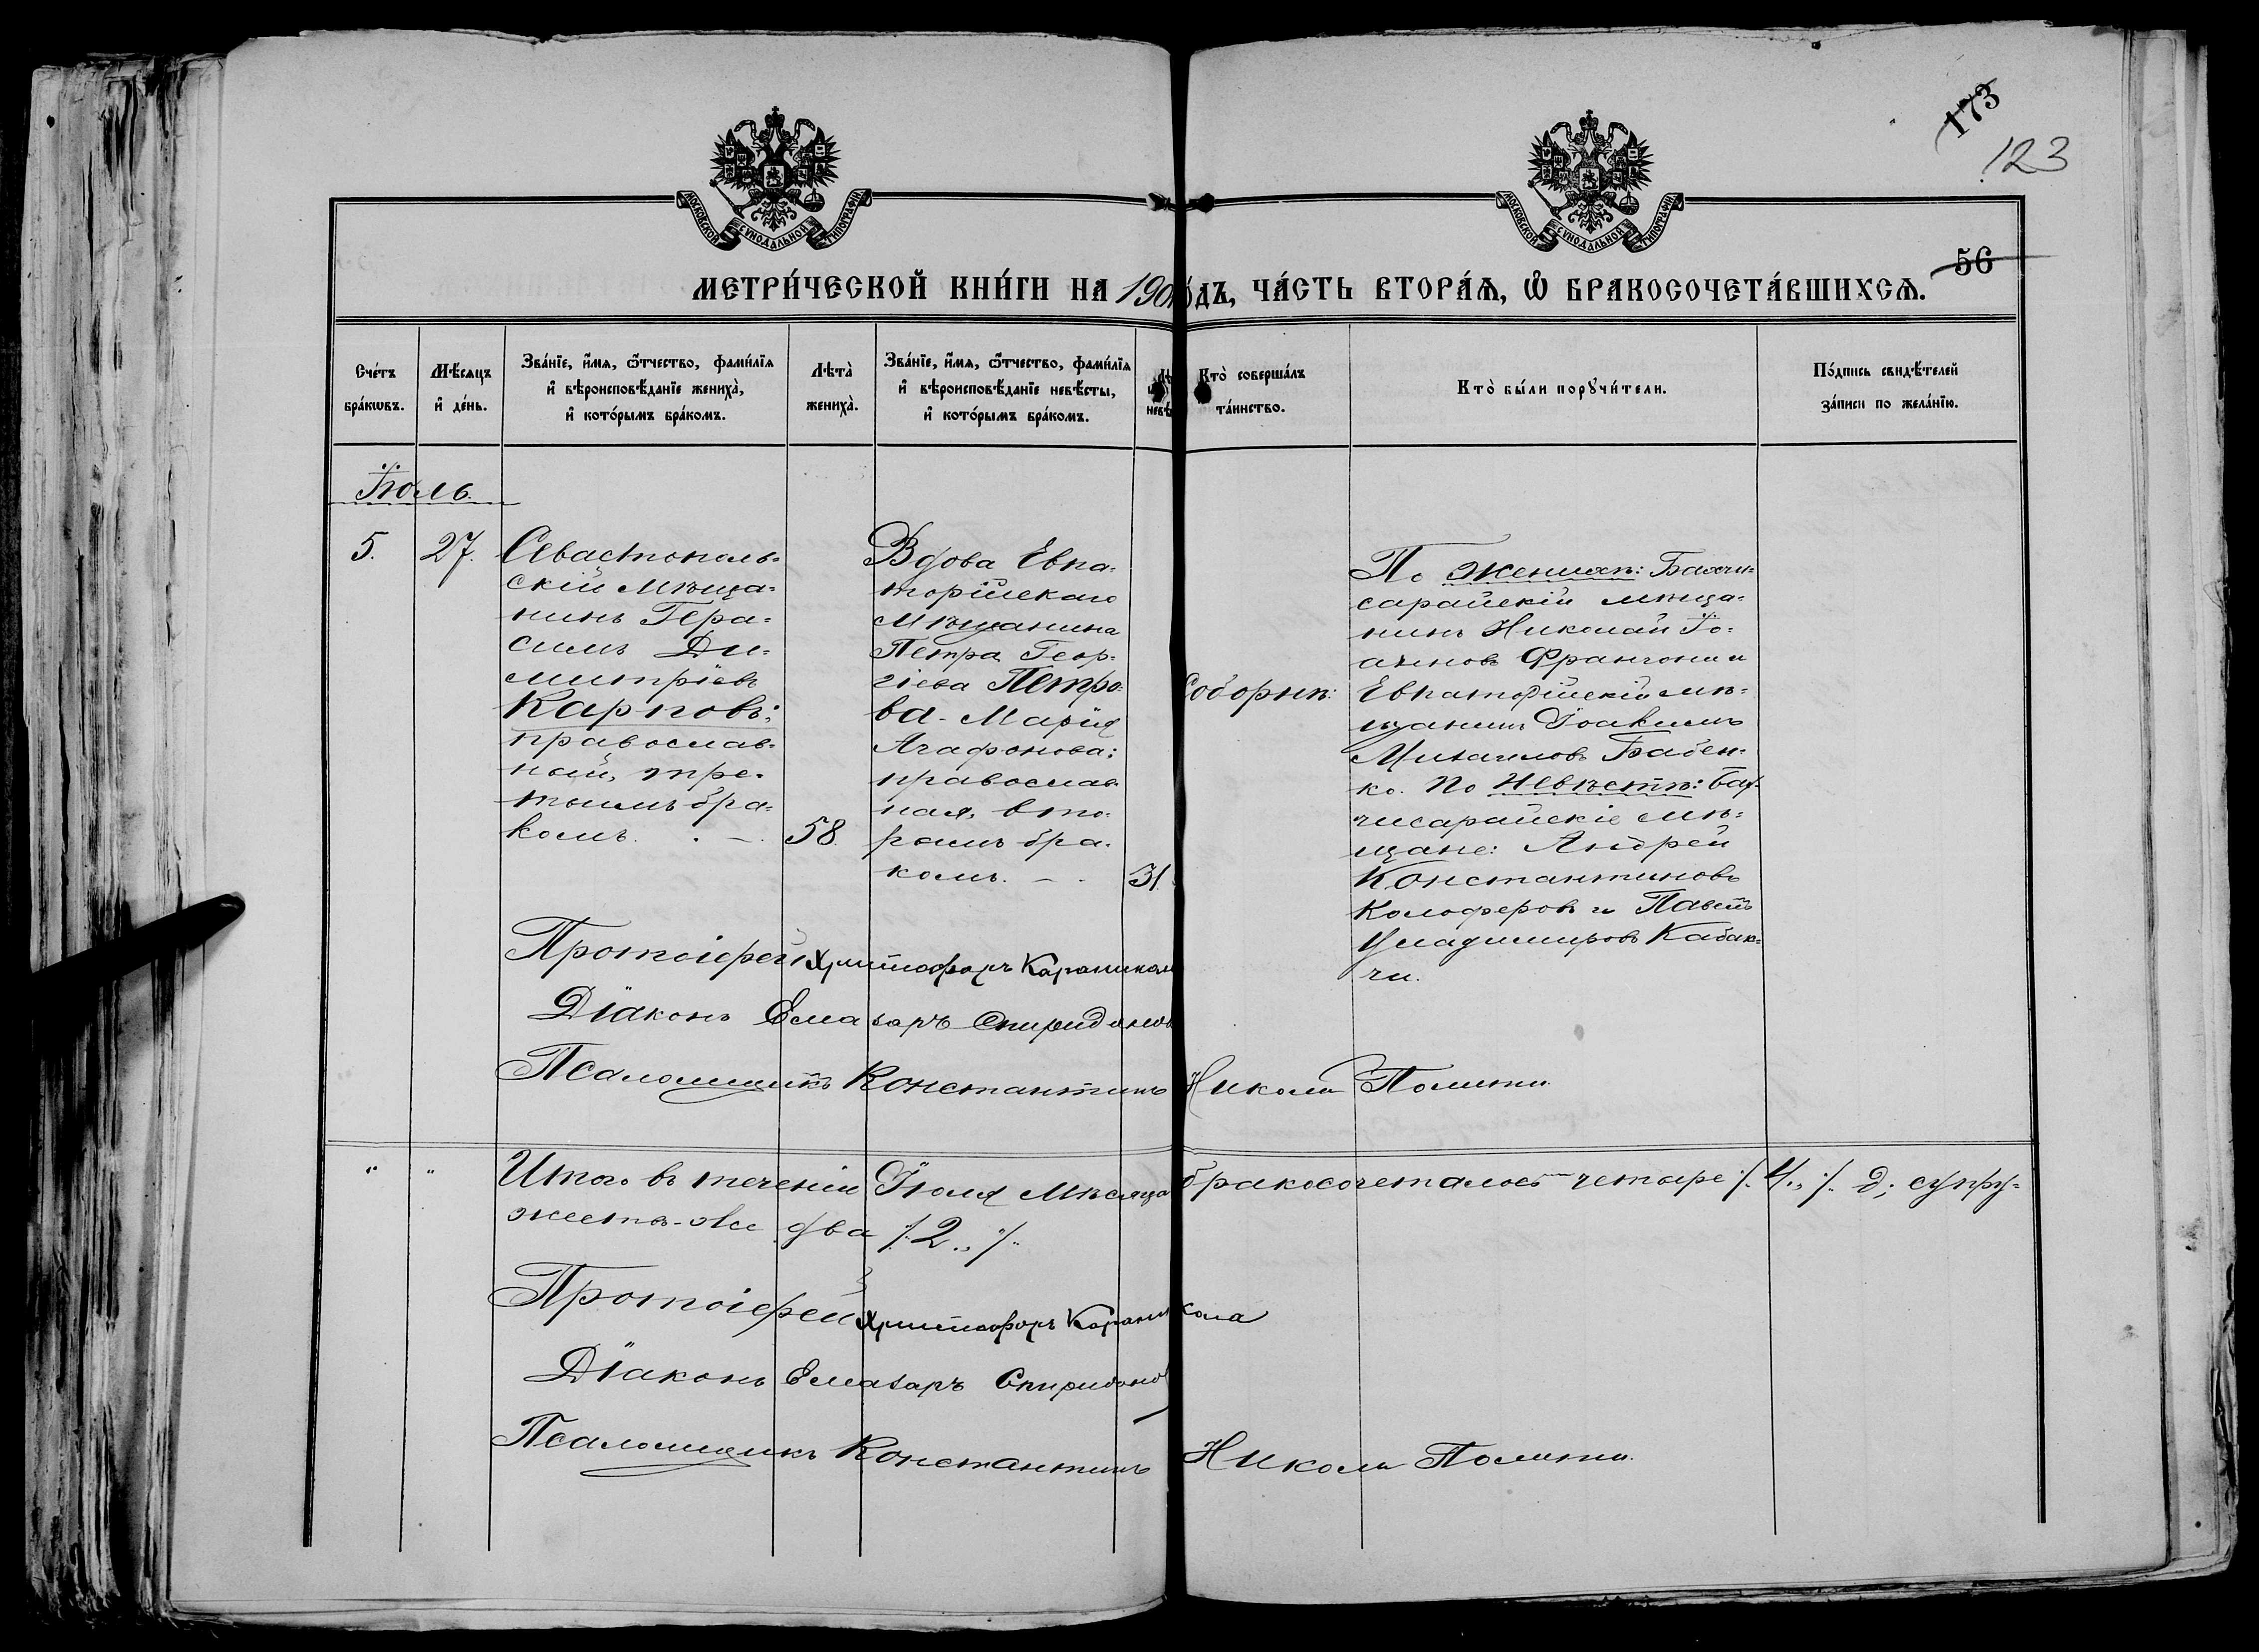 173
123
МОСКОВСКОЙ СѴНОДАЛЬНОЙ ТИПОГРАФІИ
МОСКОВСКОЙ СѴНОДАЛЬНОЙ ТИПОГРАФІИ
56
МЕТРИ́ЧЕСКОЙ КНИ́ГИ НА 190 ДЪ, ЧА́СТЬ ВТОРА́Ѧ, Ѡ҆ БРАКОСОЧЕТА́ВШИХСѦ.
Сче́тъ бра́кѡвъ.
Мѣ́сяцъ и҆ де́нь.
Зва́нїе, и҆́мя, ѻ҆́тчество, фами́лїя и҆ вѣроисповѣ́данїе жениха̀, и҆ кото́рымъ бра́комъ.
Лѣта̀ жениха̀.
Зва́нїе, и҆́мя, ѻ҆́тчество, фами́лїя и҆ вѣроисповѣ́данїе невѣ́сты, и҆ кото́рымъ бра́комъ.
Кто̀ соверша́лъ та́инство.
Кто̀ бы́ли порꙋчи́тели.
По́дпись свидѣ́телей за́писи по жела́нїю.
Іюль.
5.
27.
Севастополь-
скій мѣща-
нинъ Гера-
симъ Ди-
митріевъ
Карповъ;
православ-
ный, тре-
тьимъ бра-
комъ.
58.
Вдова Евпа-
торійскаго
мѣщанина
Петра Геор-
гіева Петро-
ва - Марія
Агафонова;
православ-
ная, вто-
рымъ бра-
комъ.
31.
Соборнѣ:
По Женихѣ: Бахчи-
сарайскій мѣща-
нинъ Николай Іо-
анновъ Франгопи и
Евпаторійскій мѣ-
щанинъ Іоакимъ
Михаиловъ Бабен-
ко. По Невѣстѣ: Бах-
чисарайскіе мѣ-
щане: Андрей
Константиновъ
Колоферовъ и Павелъ
Владимировъ Кабак-
чи.
Протоіерей Христофоръ Караникол
Діаконъ Елеазаръ Спиридонов
Псаломщикъ Константинъ Николи Полити.
" " Итого въ теченіи Іюля мѣсяца бракосочеталось четыре /. 4., /. д; супру-
жествъ-же два /. 2., /.
Протоіерей Христофоръ Караникола
Діаконъ Елеазаръ Спиридонов
Псаломщикъ Константинъ Николи Полити.